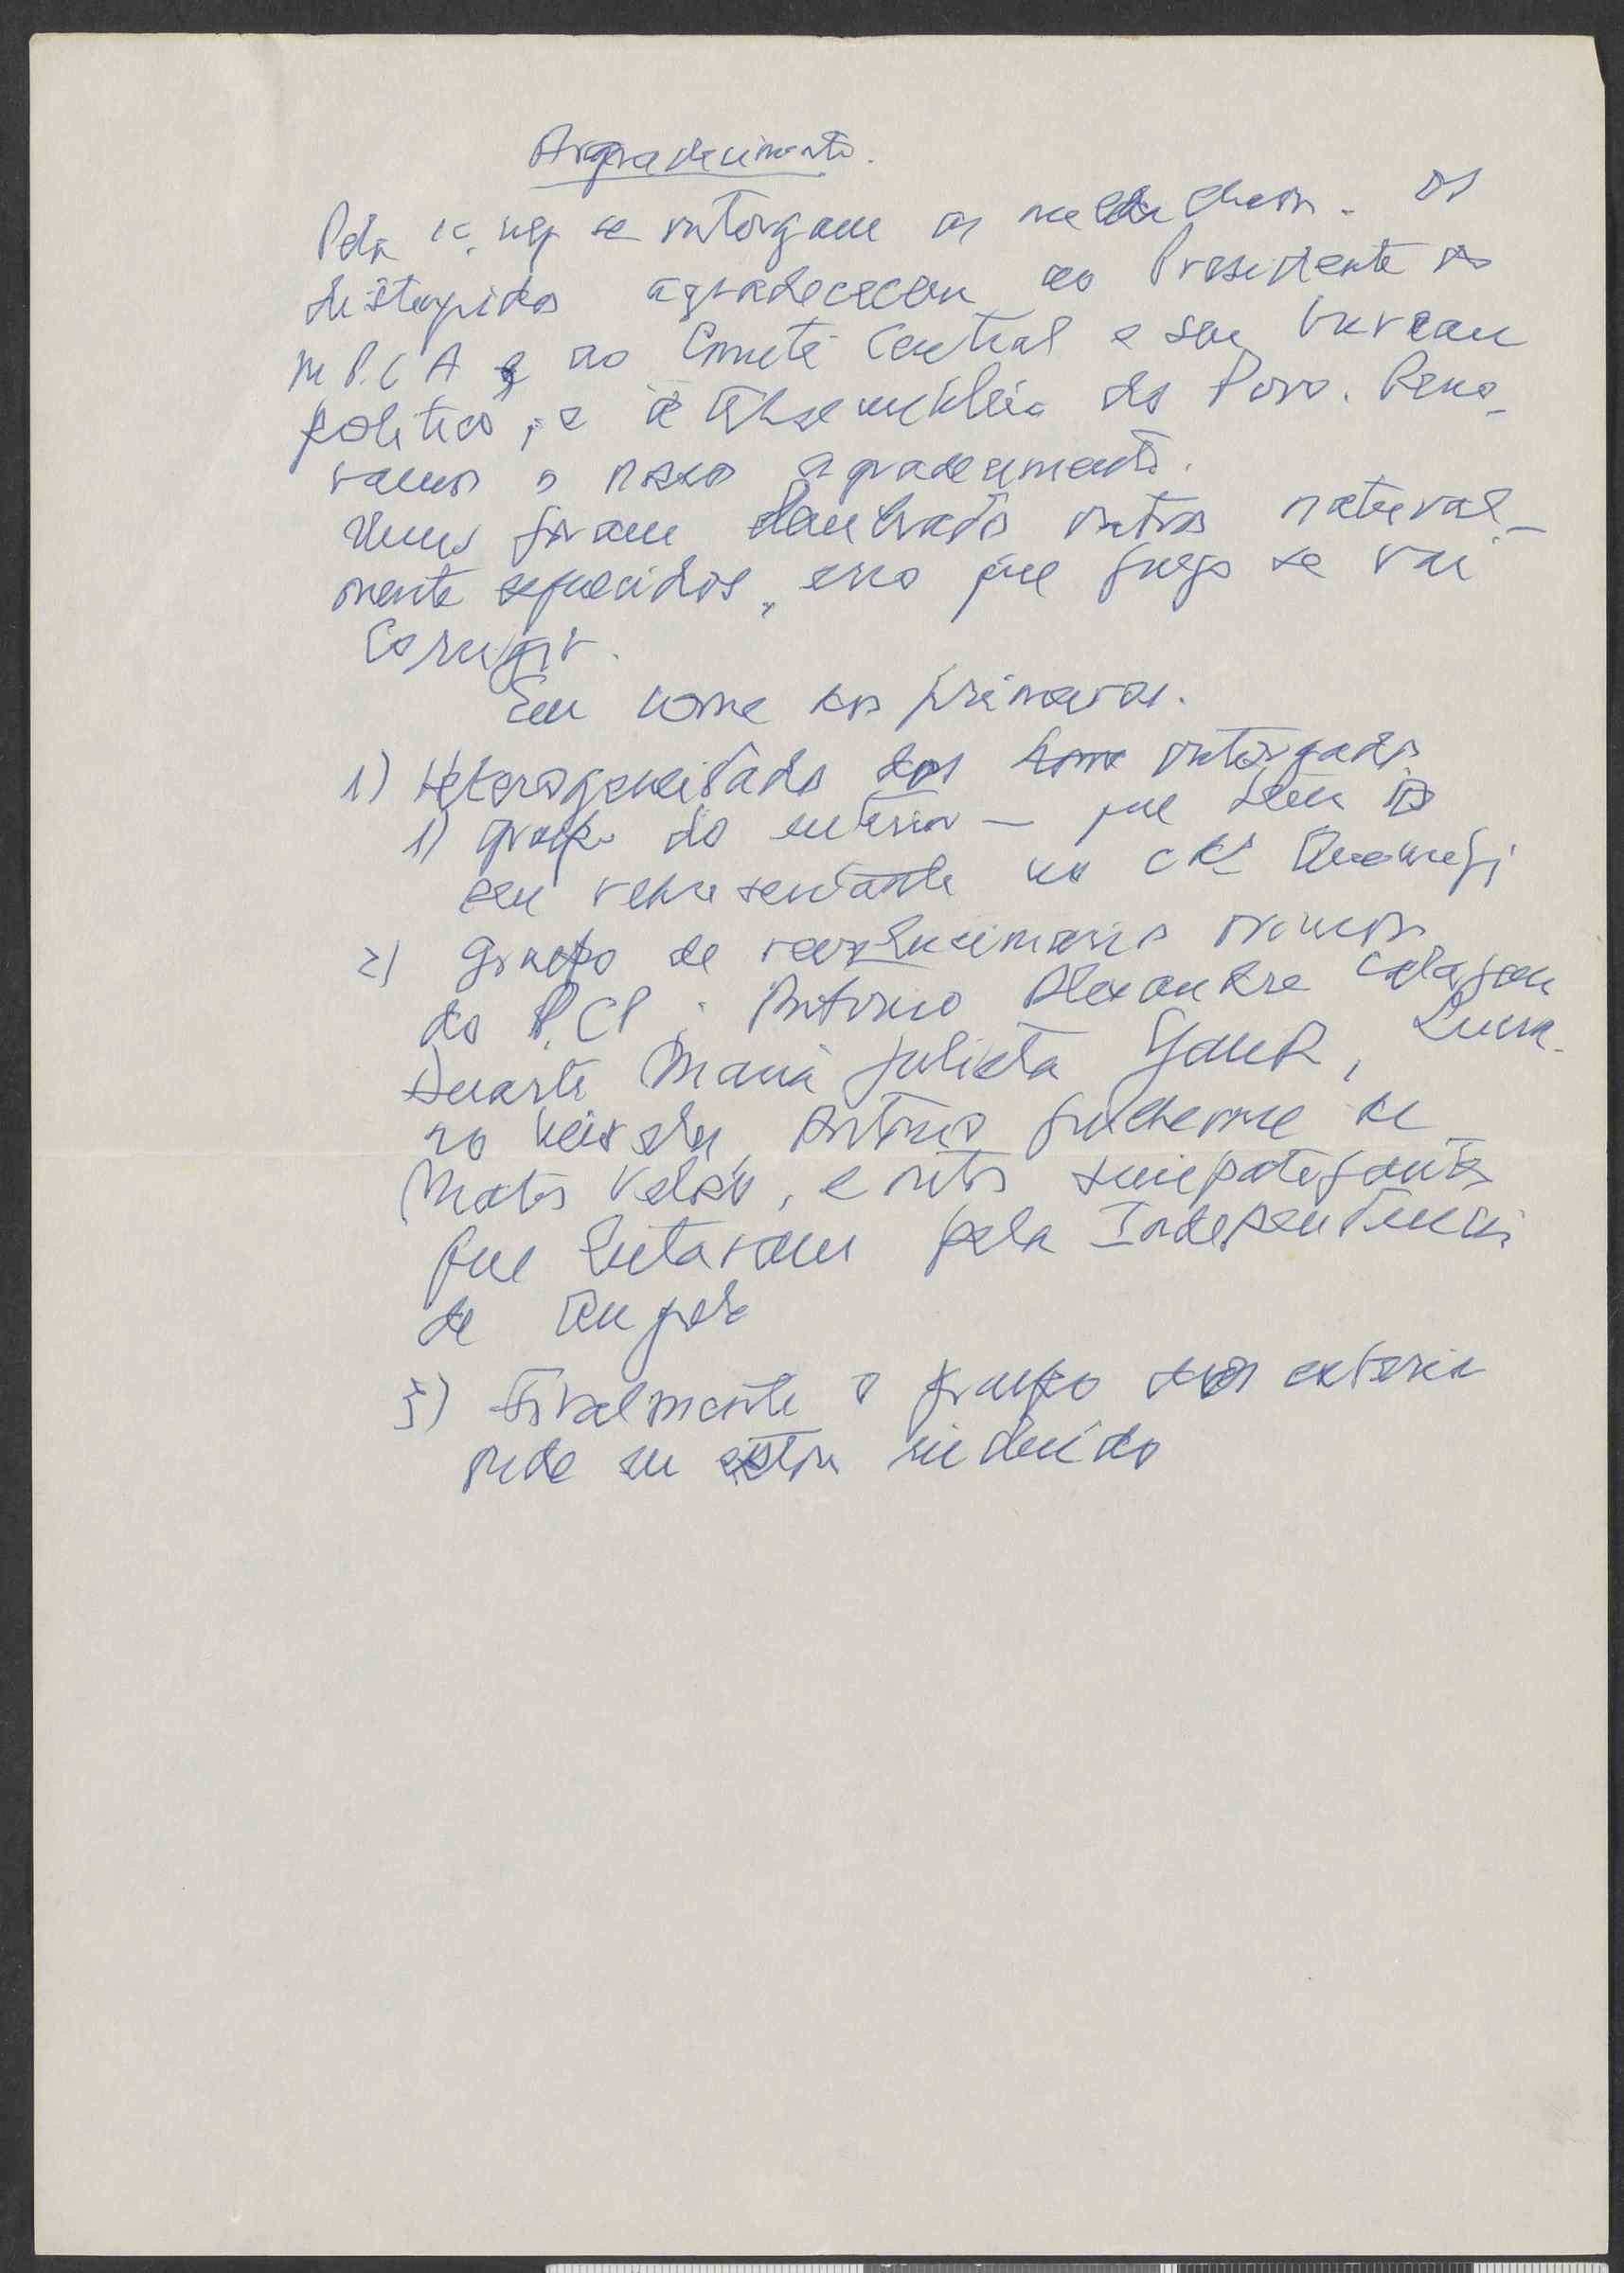 Agradecimento.
Pela se outorgam as medalhas. Os
distinguidos agradecem ao Presidente do
M P. L A e ao Comité Central e seu Bureau
politico, e à Assembleia do Povo. Reno-
vamos o nosso agradecimento.
Uns foram lembrados outros natural-
mente esquecidos, erro que logo se vai
Corrigir.
Em nome dos primeiros.
1) Heterogeneidade dos outorgados
1) grupo do interior — que tem o
seu representante no
2) Grupo de revolucionarios oriundos
do P.C.P: Antonio Alexandre Calazans
Duarte Maria Julieta Gandra,
no António Guilherme de
Matos Veloso, e outros simpatizantes
que lutaram pela Independencia
de Angola
3) Finalmente o grupo do exterior
onde eu estou incluido